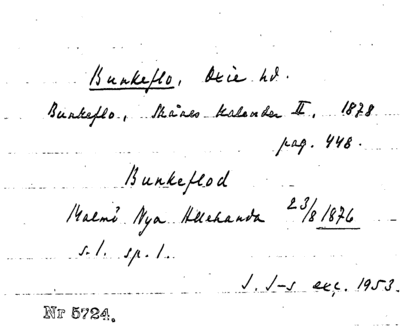 Bunkeflo, Oxie hd.
Bunkeflo, Skånes Kalender II, 1878
pag. 448.
Bunkeflod
Malmö Nya Allehanda 23/8 1876
s. 1. sp. 1.
J. J-s exc. 1953.
Nr 5724.